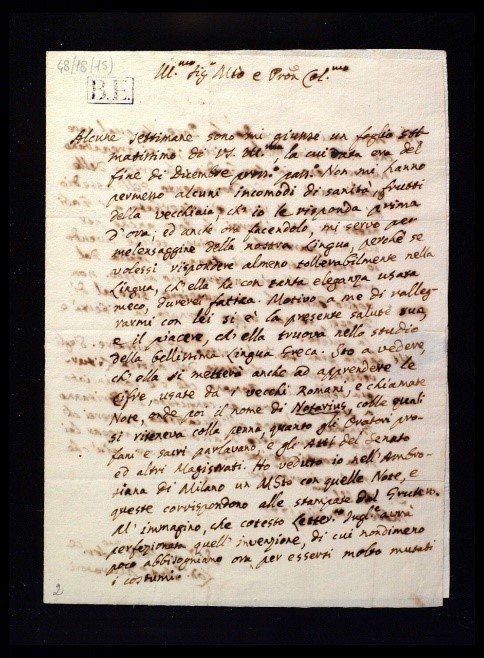 48/18(15)
B.E.
Ill.mo Sig.r Mio e Pron Col.mo
Alcune settimane sono mi giunse un foglio stimatissimo
matissimo di VS. Ill.ma, la cui data era del
fine di dicembre pross.o pass. Non mi hanno
permesso alcuni incomodi di sanità, frutti
della vecchiaia, ch'io le risponda prima
d'ora; ed anche ora facendolo, mi servo per
melensaggine della nostra Lingua, perchè se
volessi rispondere almeno tollerabilmente nella
Lingua, ch'ella ha con tanta eleganza usata
meco, durerei fatica. Motivo a me di ralleg-
rarmi con lei si è la presente salute sua,
e il piacere, ch'ella truova nello studio
della bellissima Lingua Greca. Sto a vedere,
ch'ella si metterà anche ad apprendere le
Cifre, usate da i vecchi Romani, e chiamate
Note, onde poi il nome di Notarius, colle quali
si riteneva colla penna quanto gli Oratori pro-
fani e sacri parlavano, e gli Atti del Senato
ed altri Magistrati. Ho veduto io nell'Ambro-
siana di Milano un MSto con quelle Note, e
queste corrispondono alle stampate dal Grutero.
M'immagino, che cotesto Letter.o Ingl.e avrà
perfezionata quell'invenzione, di cui nondimeno
poco abbisogniamo ora per essersi molto mutati
i costumi.
2